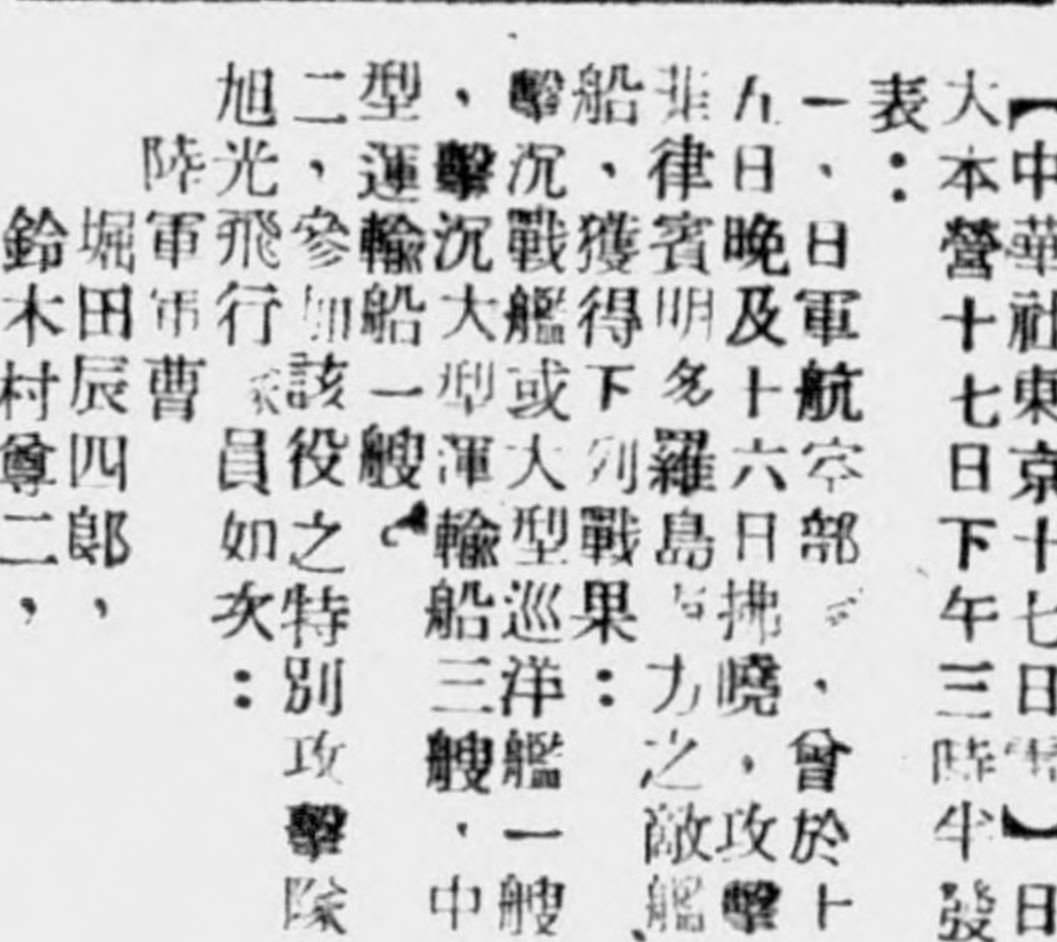 【中華社東京十七日電】日
大本營十七日下午三時半發
表：
一、日軍航空部　，曾於十
五日晚及十六日拂曉，攻擊
菲律賓明多羅島　方之敵艦
船，獲得下列戰果：
擊沉戰艦或大型巡洋艦一艘
，擊沉大型運輸船三艘，中
型運輸船一艘。
二，參加該役之特別攻擊隊
旭光飛行隊員如次：
陸軍軍曹
堀田辰四郎，
鈴木村尊二，